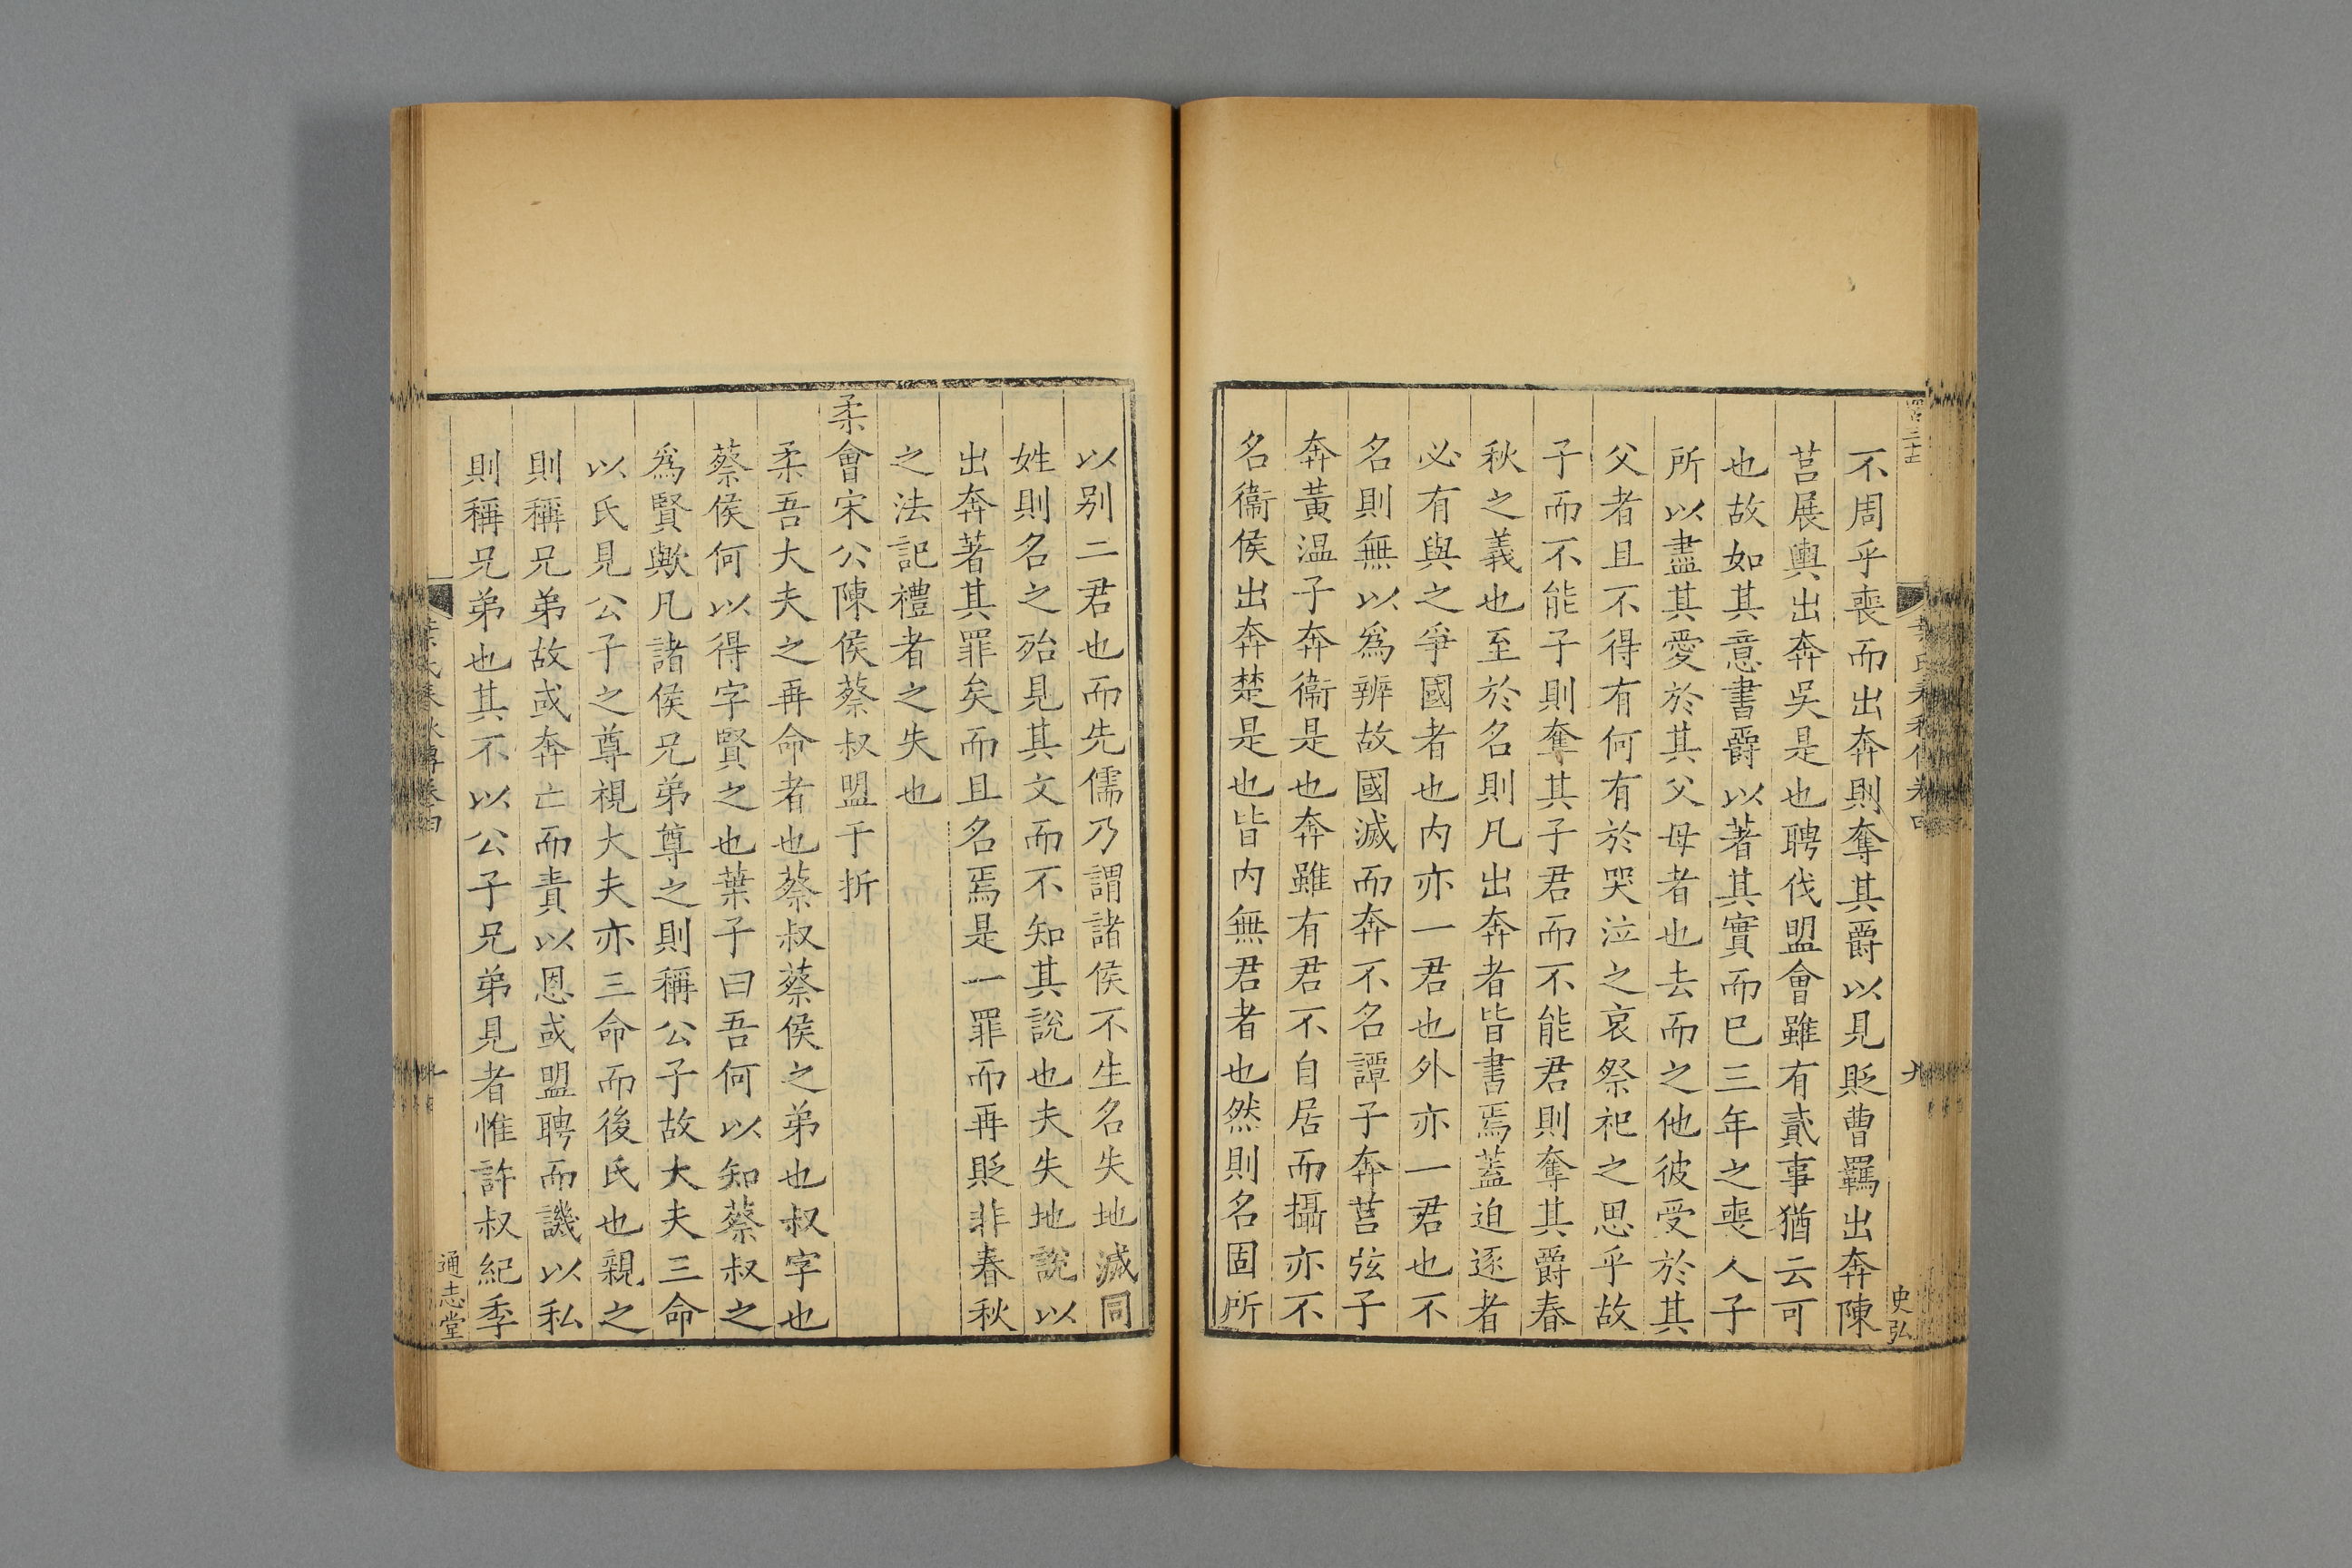 不周乎喪而出奔則奪其爵以見貶曹羈出奔陳
莒展輿出奔吳是也聘伐盟會雖有貳事猶云可
也故如其意書爵以著其實而巳三年之喪人子
所以盡其愛於其父母者也去而之他彼受於其
父者且不得有何有於哭泣之哀祭祀之思乎故
子而不能子則奪其子君而不能君則奪其爵春
秋之義也至於名則凡出奔者皆書焉蓋迫逐者
必有與之爭國者也内亦一君也外亦一君也不
名則無以爲辨故國滅而奔不名譚子奔莒弦子
奔黃温子奔衞是也奔雖有君不自居而攝亦不
名衞侯出奔楚是也皆内無君者也然則名固所
九
史弘
以别二君也而先儒乃謂諸侯不生名失地滅同
姓則名之殆見其文而不知其說也夫失地說以
出奔著其罪矣而且名焉是一罪而再貶非春秋
之法記禮者之失也
柔會宋公陳侯蔡叔盟于折
柔吾大夫之再命者也蔡叔蔡侯之弟也叔字也
蔡侯何以得字賢之也葉子曰吾何以知蔡叔之
爲賢歟凡諸侯兄弟尊之則稱公子故大夫三命
以氏見公子之尊視大夫亦三命而後氏也親之
則稱兄弟故或奔亡而責以恩或盟聘而譏以私
則稱兄弟也其不以公子兄弟見者惟許叔紀季
通志堂